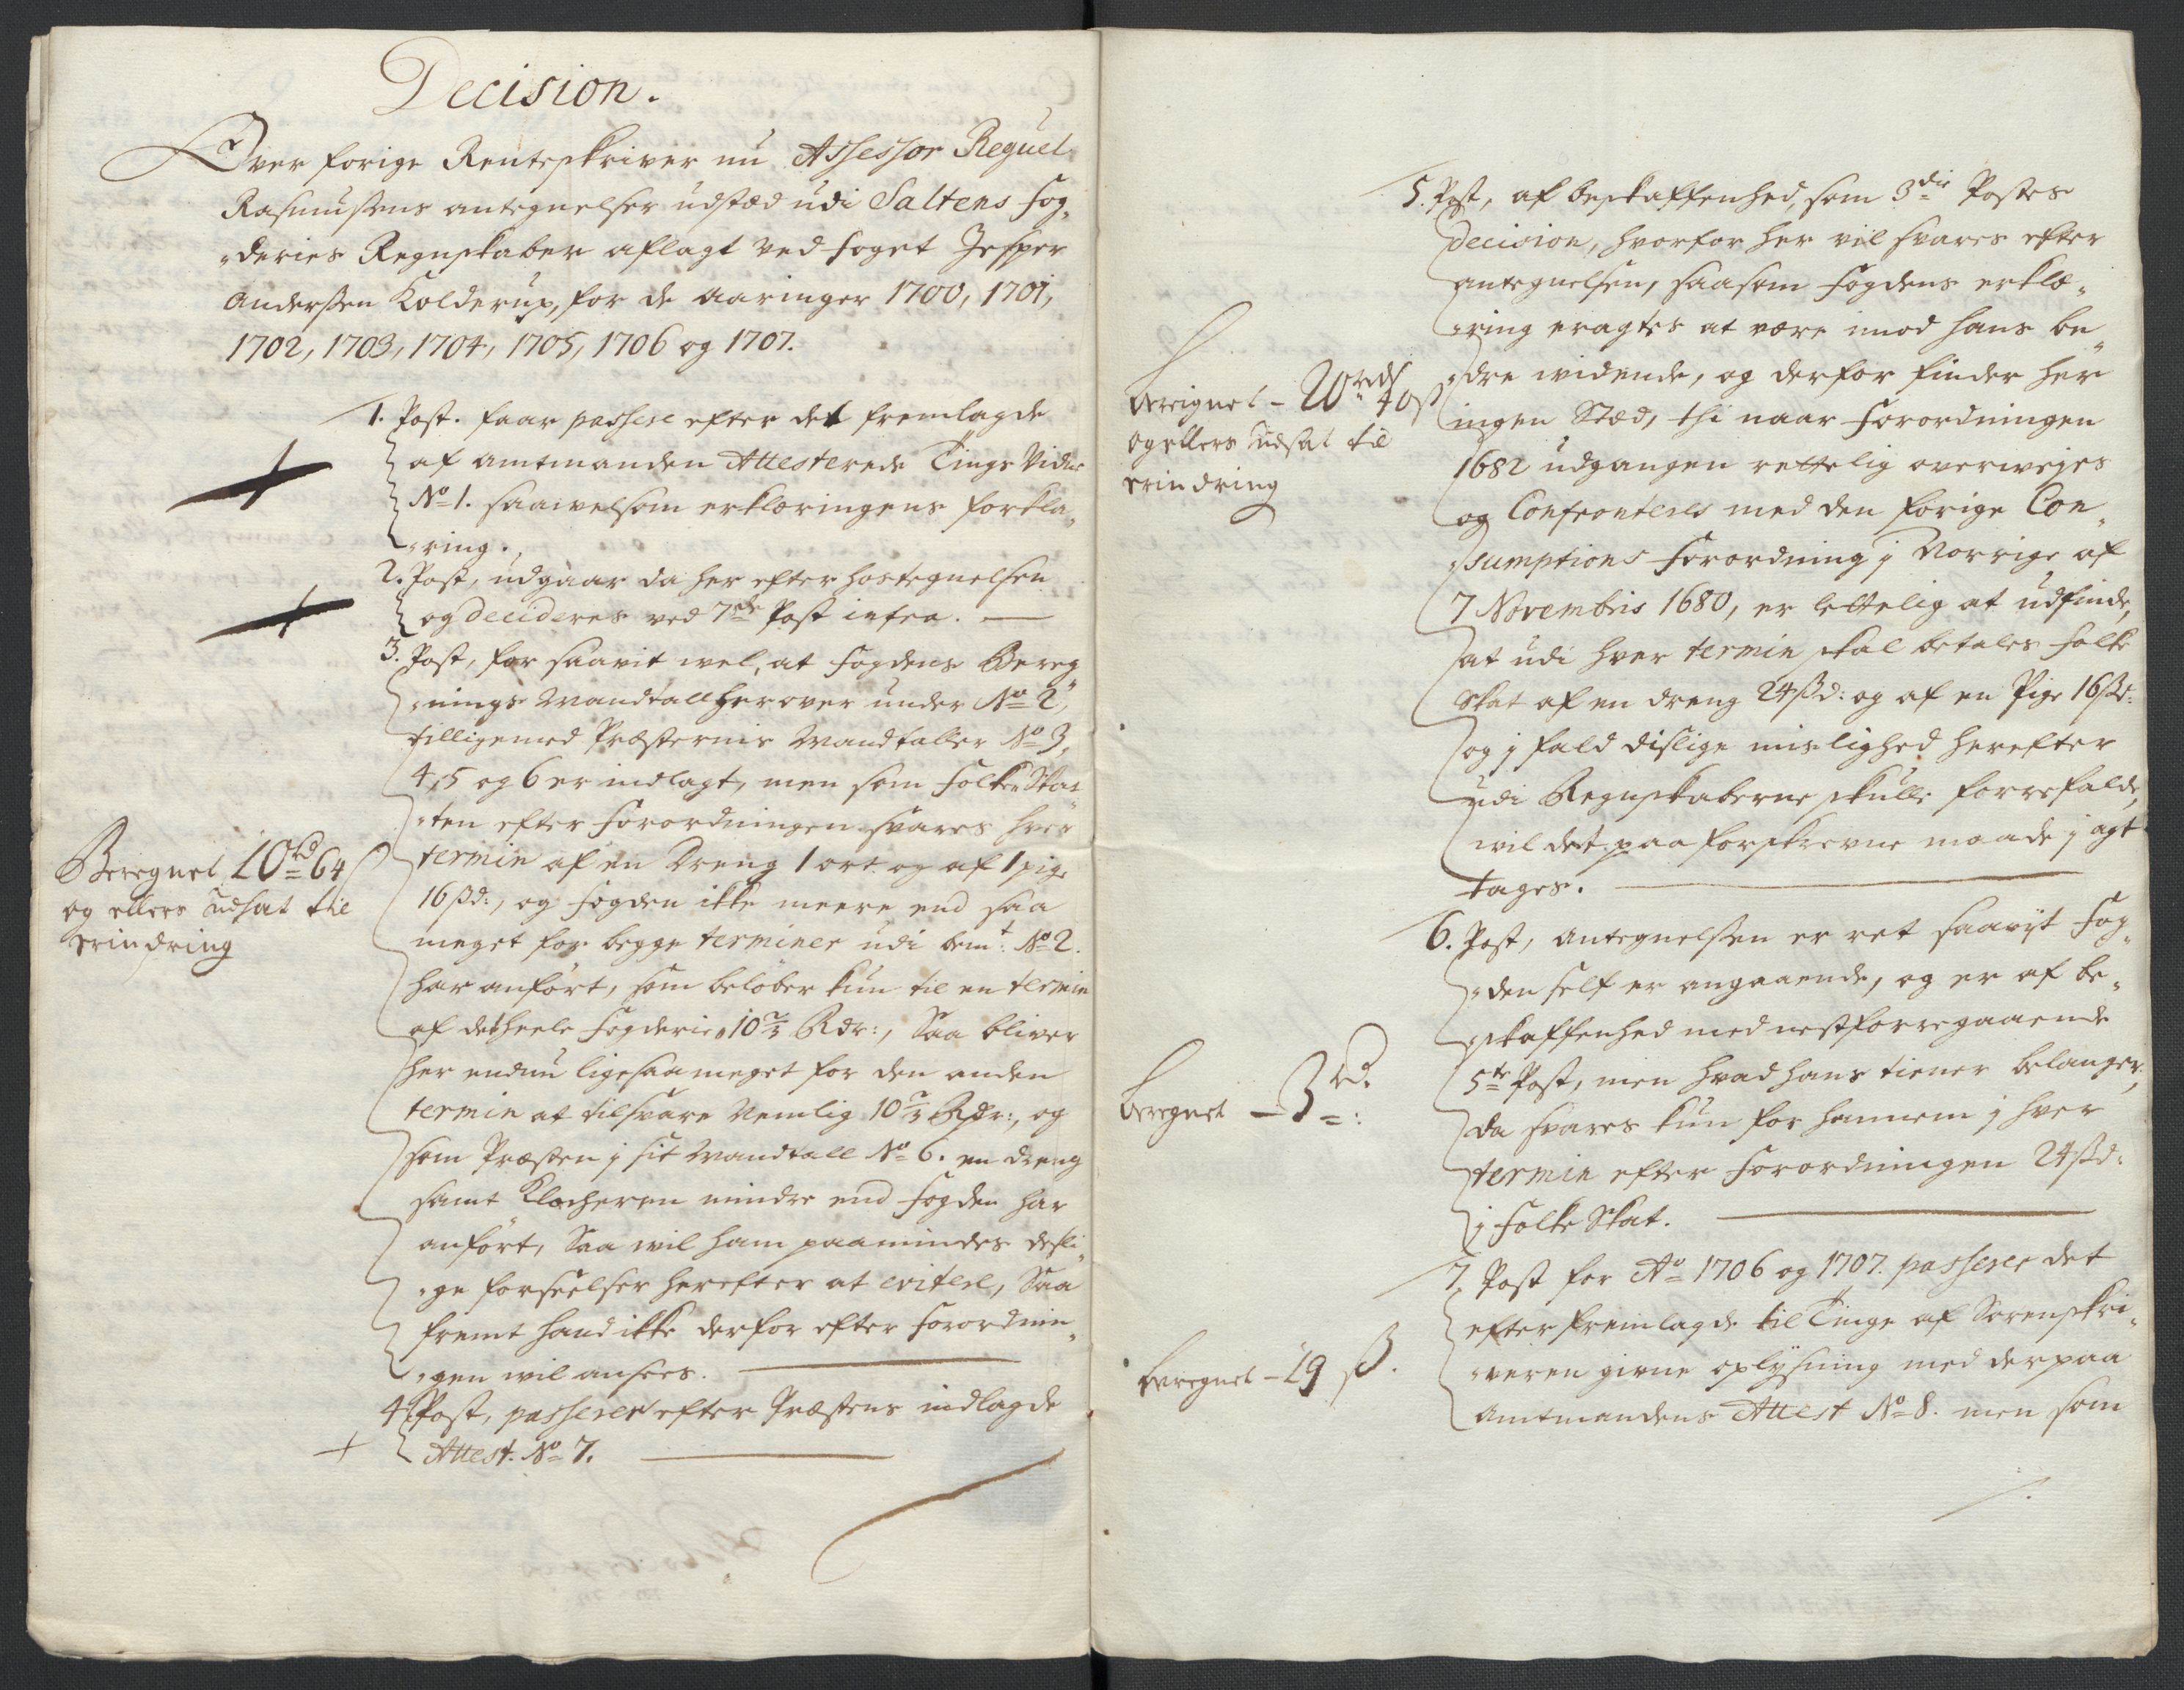 Decision.
Over forige Renteskriver nu Assessor Reguel
Rasmussens antegnelser udsted udi Saltens fog„
„deries Regnskaber aflagt ved foget Jesper
Anderssen Kolderup, for de aaringer 1700, 1701,
1702, 1703, 1704, 1705, 1706 og 1707.
1. Post. faar passere efter det fremlagde
af amtmanden Attesterede Tings Vidne
No 1. saavelsom erklæringens forkla„
„ring.
2. Post, udgaar da her efter hostegnelsen
og decideres ved 7de Post infra.
3. Post, for saavit vel, at fogdens Bereg„
„nings Mandtall herover under No 2,
tilligemed Præsternis Mandtaller No 3,
4, 5 og 6 er indlagt, men som Folke Skat„
„ten efter Forordningen svares hver
termin af en Dreng 1 ort og af 1 pige
16 ßd:, og fogden ikke meere end saa
Beregnet 10 rd 64 ß
og ellers udsat til
erindring
meget for begge terminer udi bemt: No 2.
har anført, som beløber kun til en termin
af det heele fogderie 10 2/3 Rdr:, Saa bliver
her endnu ligesaameget for den anden
termin at tilsvare Nemlig 10 2/3 Rdr:, og
som Præsten j sit Mandtall No 6. en dreng
samt Klocheren mindre end fogden har
anført, Saa vil ham paamindes desli„
„ge forseelser herefter at evitere, Saa
fremt hand ikke derfor efter Forordnin„
„gen vil ansees.
4. Post, passerer efter Præstens indlagde
Attest No 7.
5. Post, af beskaffenhed, som 3die Postes
decision, hvorfor her vil svares efter
antegnelsen, saasom fogdens erklæ„
„ring eragtes at være imod hans be„
„dre vidende, og derfor finder her
Bereignet - 20 rdr 40 ß
og ellers udsat til
erindring
ingen Stæd, thi naar Forordningen
1682 udgangen rettelig overvejes
og Confronteres med den forige Con„
„sumptions Forordning j Norrige af
7 Novembris 1680, er lettelig at udfinde,
at udi hver termin skal betales folke
Skat af en dreng 24 ßd: og af en Pige 16 ßd:
og j fald dislige mislighed herefter
udi Regnskaberne skulle forrefalde,
vil det paa forskrevne maade j agt
tages.
6. Post, Antegnelssen er ret saavit Fog„
„den self er angaaende, og er af be„
„skaffenhed med nestforregaaende
5te Post, men hvad hans tiener belanger,
Beregnet - 3 rd:
da svares kun for hannem j hver
termin efter Forordningen 24 ßd:
j Folke Skat.
7. Post for Ao 1706 og 1707. passerer det
efter fremlagde til Tinge af Sorenskri„
Beregnet - 29 ß.
„veren givne oplysning med derpaa
Amtmandens Attest No 8. men som